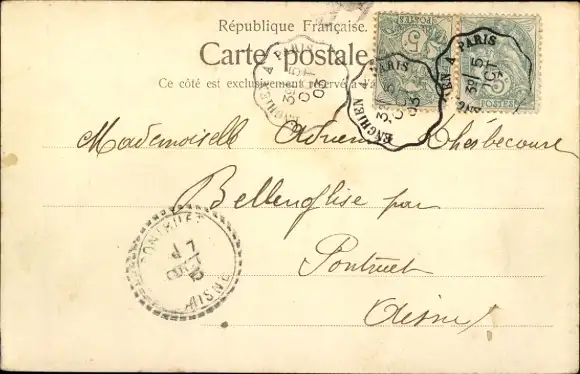 République Française.
Carte postale
Ce côté est exclusivement réservé à l'a
ENGHIEN A PARIS 3° 5 OCT 03
ENGHIEN A PARIS 3° 5 OCT 03
POSTES 5
POSTES 5
Mademoiselle Adrienne
Bellenglise par
Pontruet
Aisne
PONTRUET AISNE 7 OCT